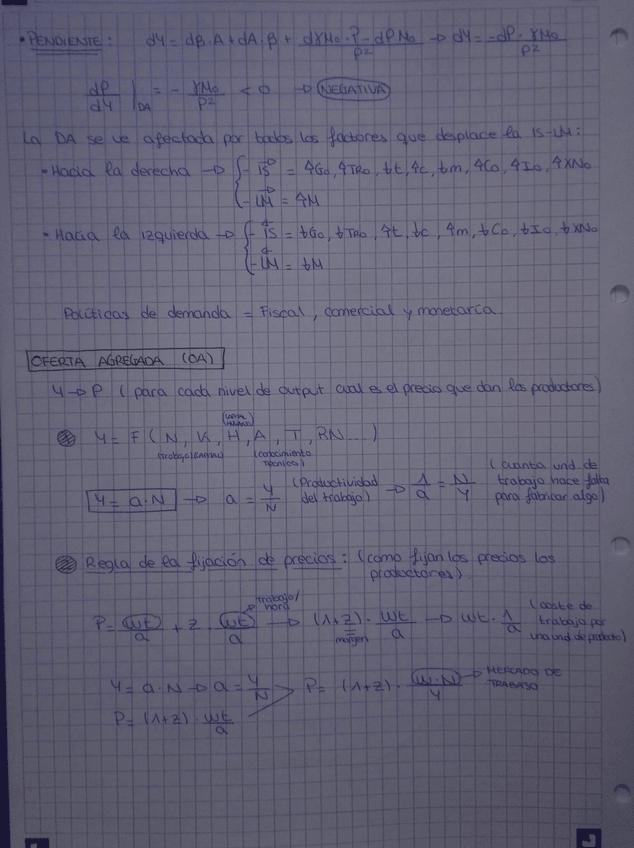 • PENDIENTE: dY = dβ·A + dA·β + (dγM₀·P - dP M₀)/P² → dY = (-dP·γM₀)/P²
dP/dY |DA = - γM₀/P² < 0 → NEGATIVA
La DA se ve afectada por todos los factores que desplace la IS-LM:
• Hacia la derecha → { - IS→ = ↑G₀, ↑TR₀, ↓t, ↑c, ↓m, ↑C₀, ↑I₀, ↑XN₀
- LM→ = ↑M
• Hacia la izquierda → { - IS← = ↓G₀, ↓TR₀, ↑t, ↓c, ↑m, ↓C₀, ↓I₀, ↓XN₀
- LM← = ↓M
Políticas de demanda = Fiscal, comercial y monetaria.
OFERTA AGREGADA (OA)
Y → P (para cada nivel de output cual es el precio que dan los productores)
Y = F (N, K, H, A, T, RN...)
(trabajo) (conocimiento técnico)
Y = a·N → a = Y/N (Productividad del trabajo) → 1/a = N/Y (cuanta und de trabajo hace falta para fabricar algo)
Regla de la fijación de precios: (como fijan los precios los productores)
P = wt/a + z · wt/a → (1+z) · wt/a → wt · 1/a (coste de trabajo por una und de producto)
trabajo/hora
margen
Y = a·N → a = Y/N
P = (1+z) · wt/a
P = (1+z) · W·N/Y → MERCADO DE TRABAJO